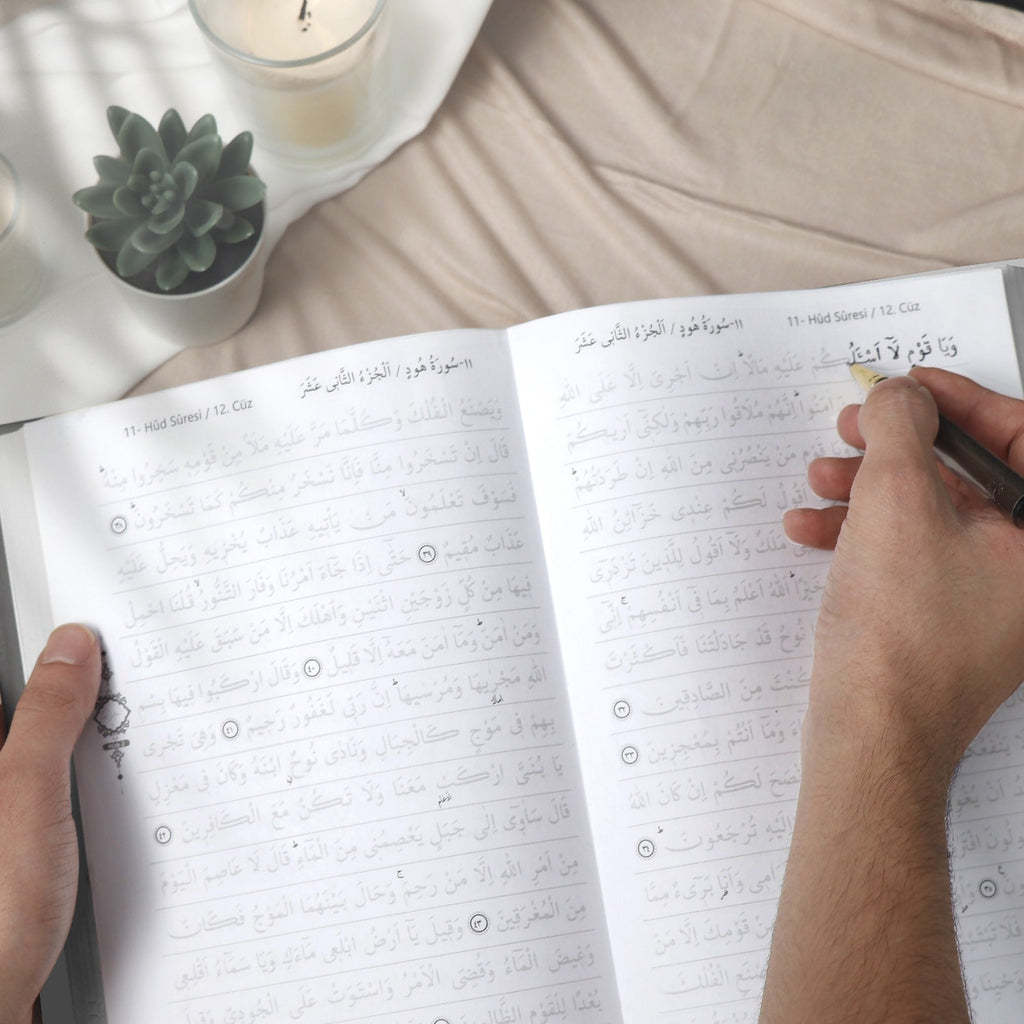 ١١-سُورَةُ هُودٍ / اَلْجُزْءُ الثَّانِى عَشَرَ 11- Hûd Sûresi / 12. Cüz
وَيَا قَوْمِ لَٓا اَسْـَٔلُكُمْ عَلَيْهِ مَالًاۜ اِنْ اَجْرِىَ اِلَّا عَلَى اللّٰهِ
اٰمَنُواۜ اِنَّهُمْ مُلَاقُوا رَبِّهِمْ وَلٰكِنّٖٓى اَرٰيكُمْ
قَوْمِ مَنْ يَنْصُرُنٖى مِنَ اللّٰهِ اِنْ طَرَدْتُهُمْۜ
اَقُولُ لَكُمْ عِنْدٖى خَزَٓائِنُ اللّٰهِ
مَلَكٌ وَلَٓا اَقُولُ لِلَّذٖينَ تَزْدَرٖٓى
خَيْرًاۜ اَللّٰهُ اَعْلَمُ بِمَا فٖٓى اَنْفُسِهِمْۚ اِنّٖٓى
نُوحُ قَدْ جَادَلْتَنَا فَاَكْثَرْتَ
كُنْتَ مِنَ الصَّادِقٖينَ ٣٢
وَمَٓا اَنْتُمْ بِمُعْجِزٖينَ ٣٣
اَنْصَحَ لَكُمْ اِنْ كَانَ اللّٰهُ
وَاِلَيْهِ تُرْجَعُونَۜ ٣٤
وَاَنَا۬ بَرٖٓىءٌ مِمَّا
مِنْ قَوْمِكَ اِلَّا مَنْ
وَاصْنَعِ الْفُلْكَ
١١-سُورَةُ هُودٍ / اَلْجُزْءُ الثَّانِى عَشَرَ
11- Hûd Sûresi / 12. Cüz
وَيَصْنَعُ الْفُلْكَ وَكُلَّمَا مَرَّ عَلَيْهِ مَلَاٌ مِنْ قَوْمِهٖ سَخِرُوا مِنْهُۜ
قَالَ اِنْ تَسْخَرُوا مِنَّا فَاِنَّا نَسْخَرُ مِنْكُمْ كَمَا تَسْخَرُونَۜ ٣٨
فَسَوْفَ تَعْلَمُونَۙ مَنْ يَأْتٖيهِ عَذَابٌ يُخْزٖيهِ وَيَحِلُّ عَلَيْهِ
عَذَابٌ مُقٖيمٌ ٣٩ حَتّٰٓى اِذَا جَٓاءَ اَمْرُنَا وَفَارَ التَّنُّورُۙ قُلْنَا احْمِلْ
فٖيهَا مِنْ كُلٍّ زَوْجَيْنِ اثْنَيْنِ وَاَهْلَكَ اِلَّا مَنْ سَبَقَ عَلَيْهِ الْقَوْلُ
وَمَنْ اٰمَنَۜ وَمَٓا اٰمَنَ مَعَهُٓ اِلَّا قَلٖيلٌ ٤٠ وَقَالَ ارْكَبُوا فٖيهَا بِسْمِ
اللّٰهِ مَجْرٰۭيهَا وَمُرْسٰيهَاۜ اِنَّ رَبّٖى لَغَفُورٌ رَحٖيمٌ ٤١ وَهِىَ تَجْرٖى
بِهِمْ فٖى مَوْجٍ كَالْجِبَالِ وَنَادٰى نُوحٌ ابْنَهُ وَكَانَ فٖى مَعْزِلٍ
يَا بُنَىَّ ارْكَبْ مَعَنَا وَلَا تَكُنْ مَعَ الْكَافِرٖينَ ٤٢
قَالَ سَاٰوٖٓى اِلٰى جَبَلٍ يَعْصِمُنٖى مِنَ الْمَٓاءِۜ قَالَ لَا عَاصِمَ الْيَوْمَ
مِنْ اَمْرِ اللّٰهِ اِلَّا مَنْ رَحِمَۚ وَحَالَ بَيْنَهُمَا الْمَوْجُ فَكَانَ
مِنَ الْمُغْرَقٖينَ ٤٣ وَقٖيلَ يَٓا اَرْضُ ابْلَعٖى مَٓاءَكِ وَيَا سَمَٓاءُ اَقْلِعٖى
وَغٖيضَ الْمَٓاءُ وَقُضِىَ الْاَمْرُ وَاسْتَوَتْ عَلَى الْجُودِىِّ وَقٖيلَ
بُعْدًا لِلْقَوْمِ الظَّالِمٖينَ